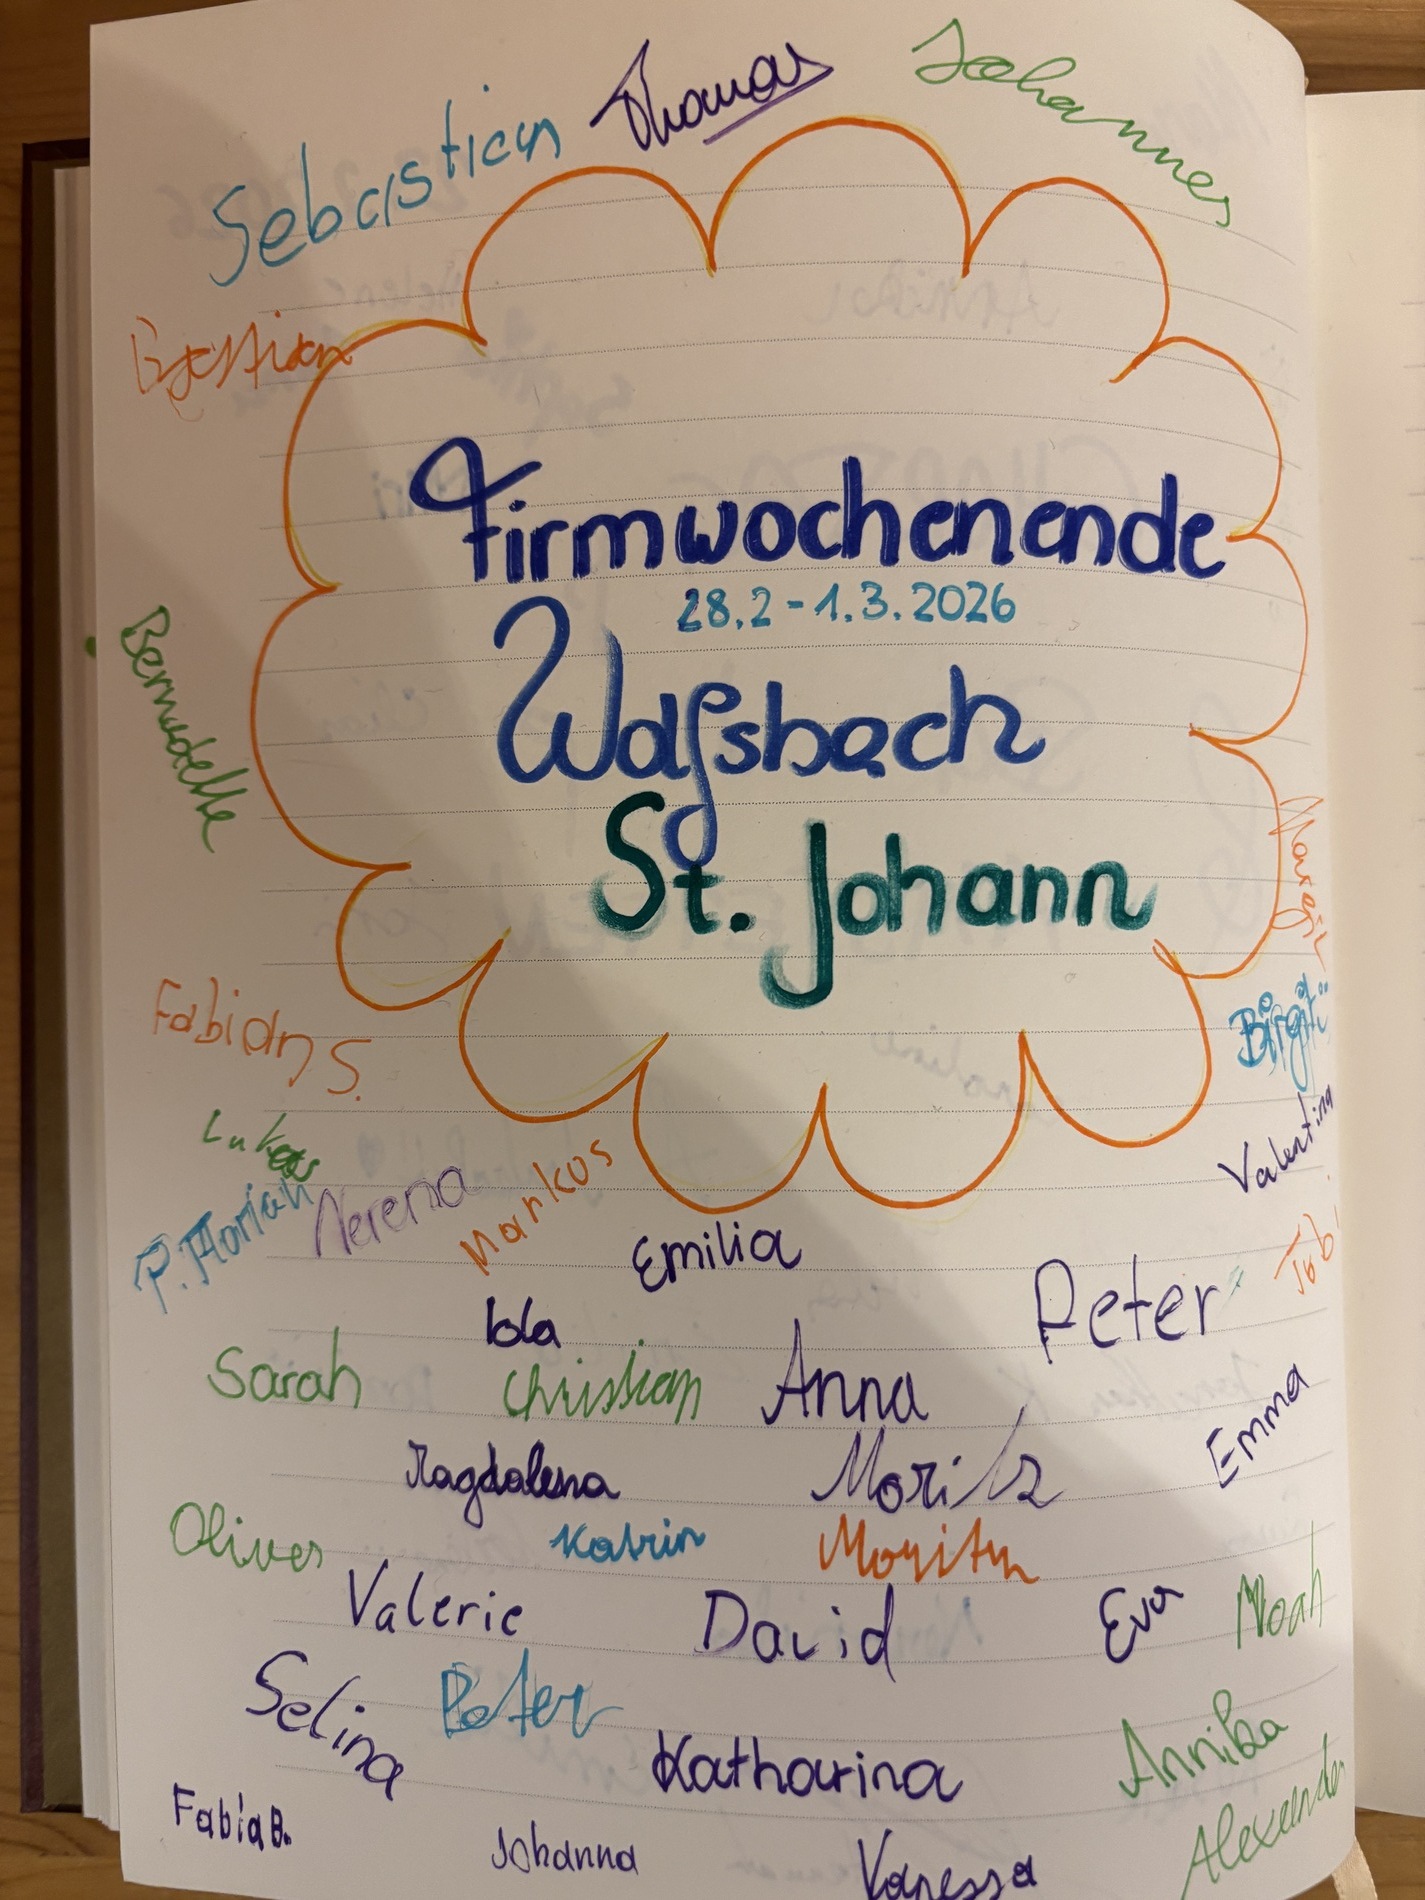 Thomas
Johannes
Sebastian
Bastian
Firmwochenende
28.2-1.3.2026
Wolfsbach
St. Johann
Bernadette
Margit
Fabian S.
Birgit
Lukas
Valentina
P. Florian
Verena
Markus
Emilia
Peter
Tobi
Ida
Sarah
Christian
Anna
Emma
Magdalena
Moritz
Oliver
Katrin
Moritz
Valerie
David
Eva
Noah
Selina
Peter
Katharina
Annika
Fabia B.
Johanna
Vanessa
Alexander